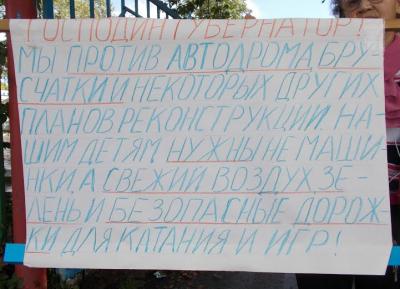 ГОСПОДИН ГУБЕРНАТОР!
МЫ ПРОТИВ АВТОДРОМА, БРУ-
СЧАТКИ И НЕКОТОРЫХ ДРУГИХ
ПЛАНОВ РЕКОНСТРУКЦИИ. НА-
ШИМ ДЕТЯМ НУЖНЫ НЕ МАШИ-
НКИ, А СВЕЖИЙ ВОЗДУХ, ЗЕ-
ЛЕНЬ И БЕЗОПАСНЫЕ ДОРОЖ-
КИ ДЛЯ КАТАНИЯ И ИГР!